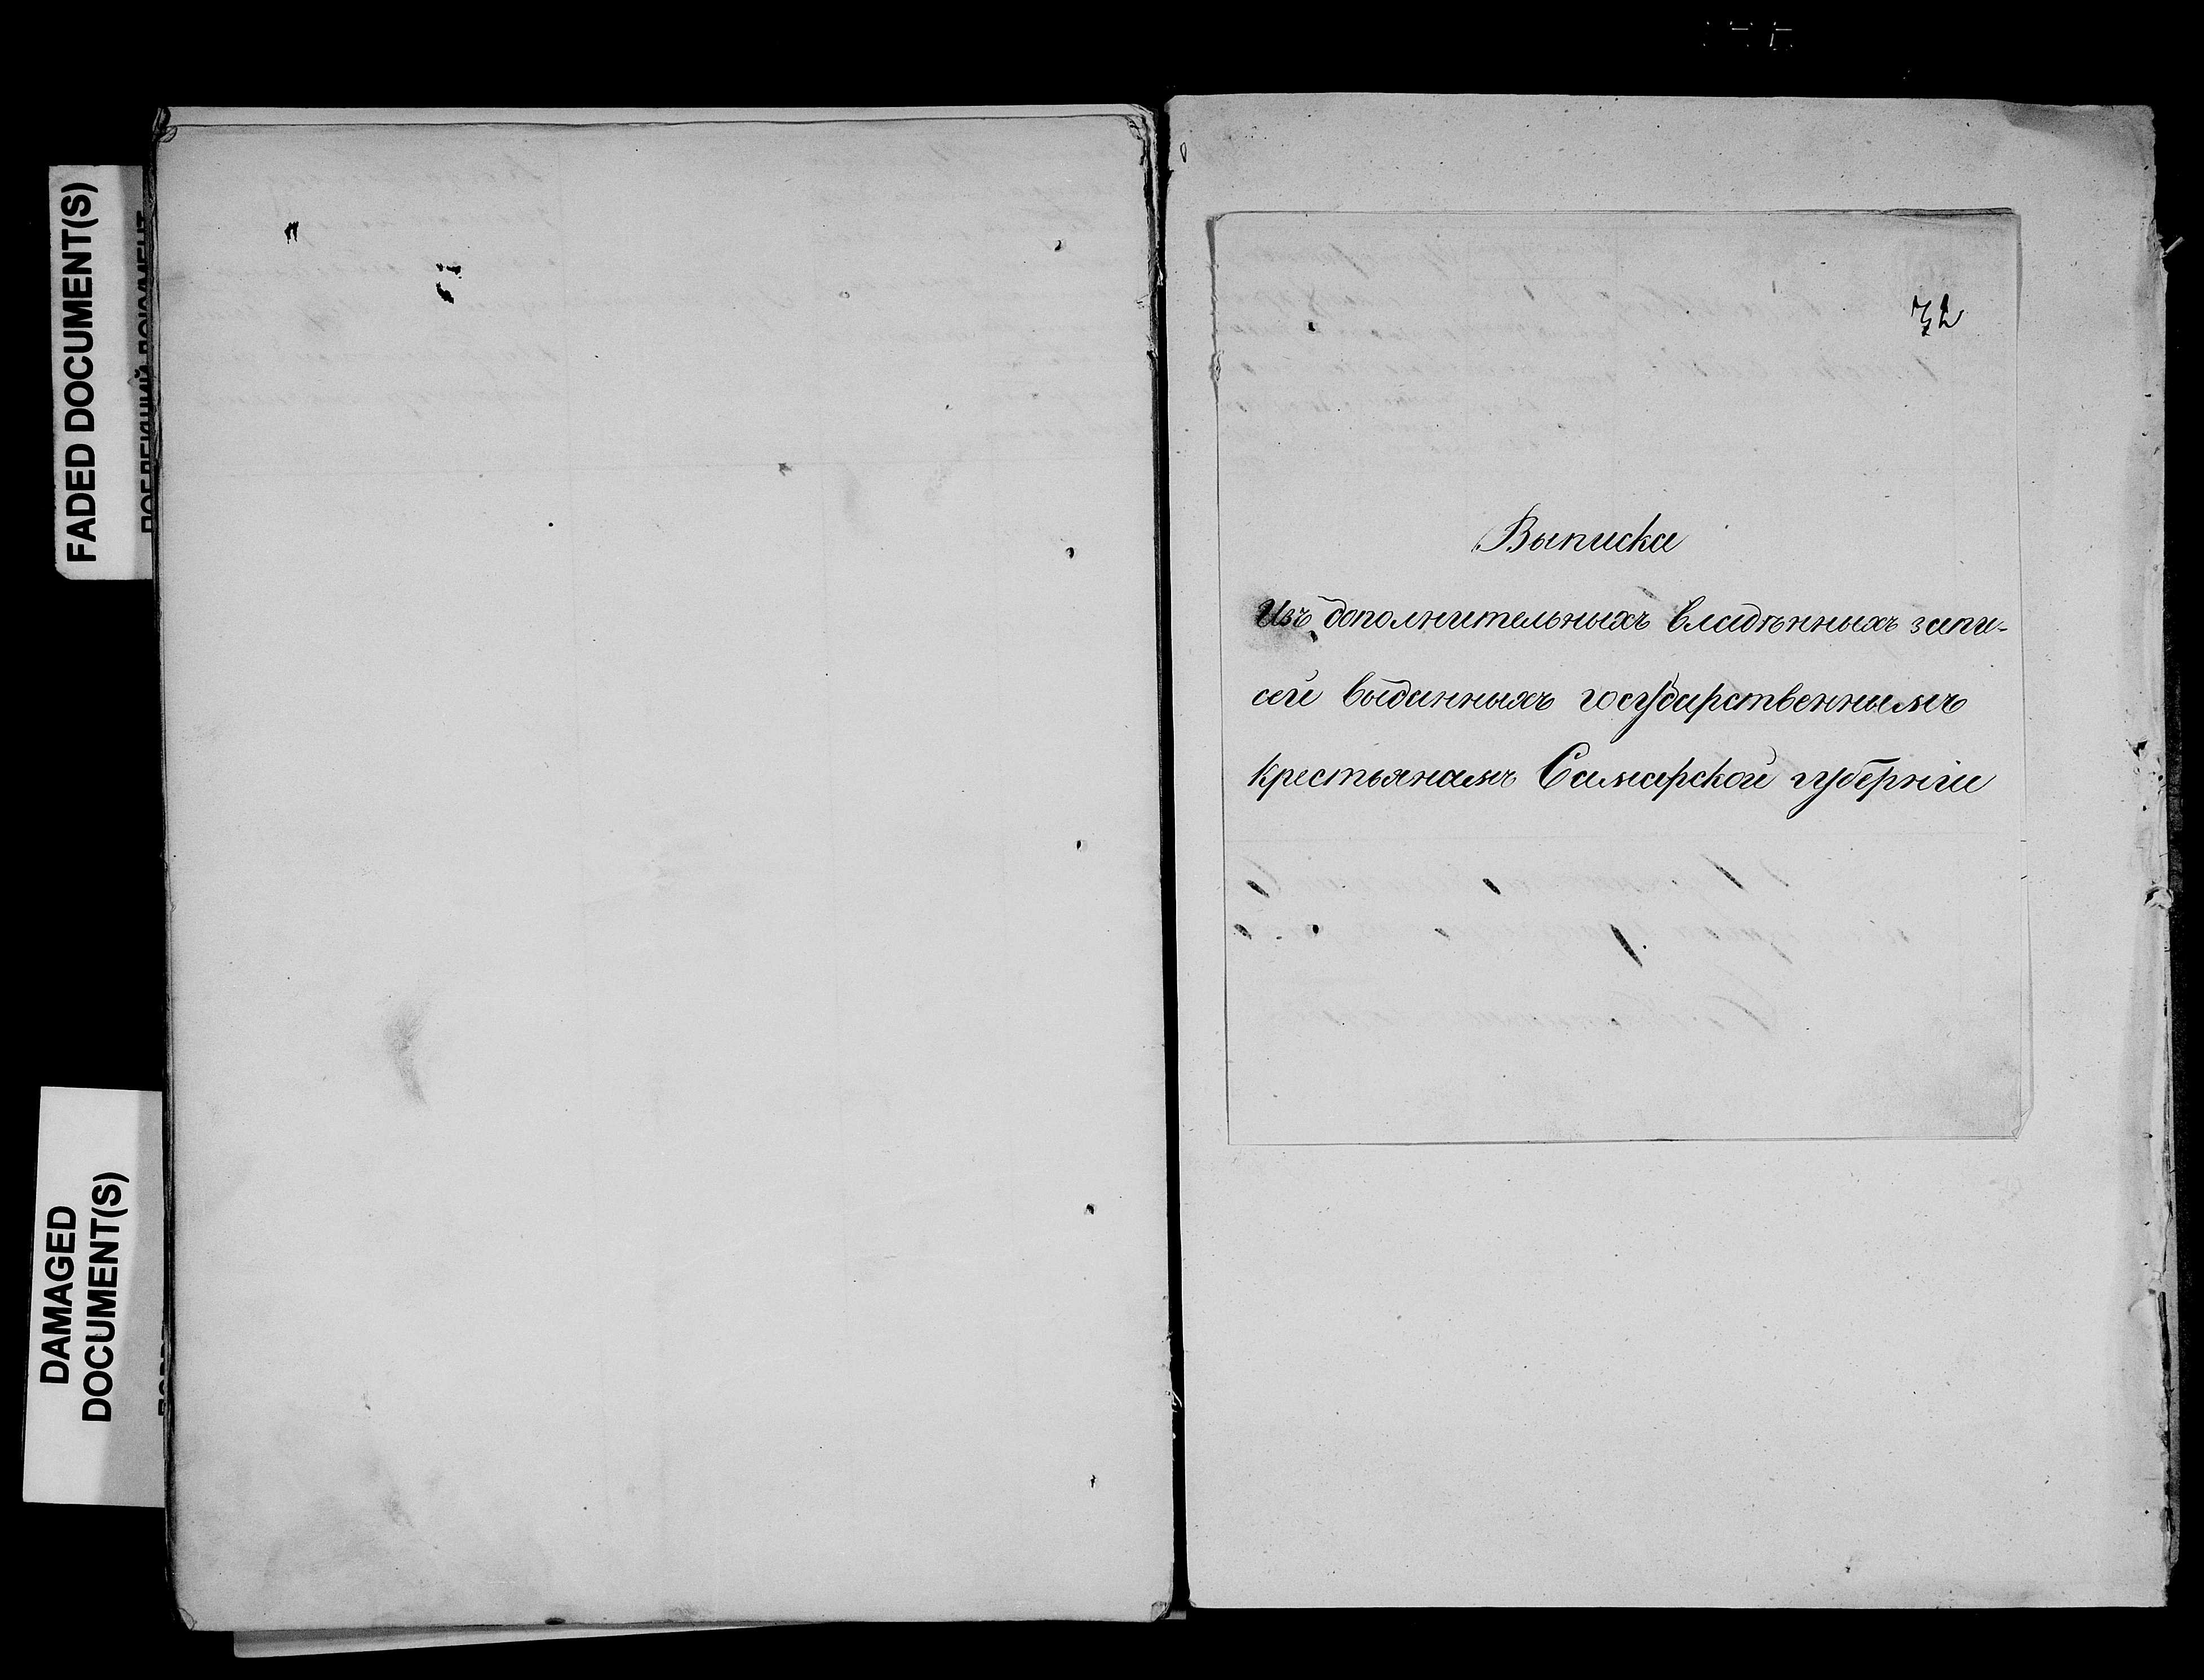 FADED DOCUMENT(S)
DAMAGED
DOCUMENT(S)
72
Выписка
Изъ дополнительныхъ владѣнныхъ запи-
сей выданныхъ государственнымъ
крестьянамъ Самарской губерніи